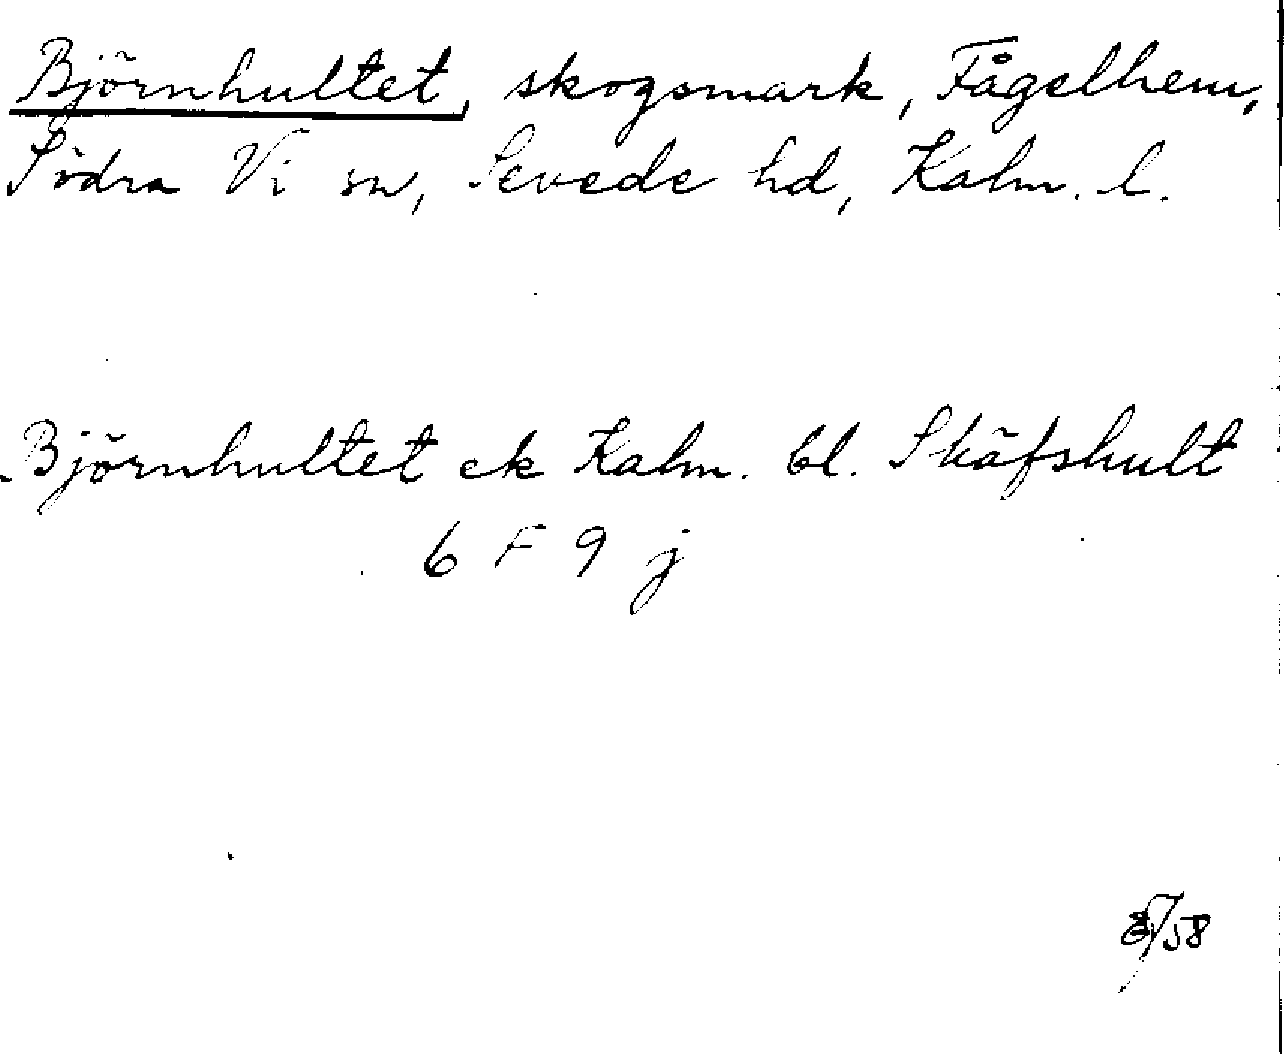 Björnhultet, skogsmark, Fågelhem,
Södra Vi sn, Sevede hd, Kalm. l.
Björnhultet ek Kalm. bl. Skäfshult
6 F 9 j